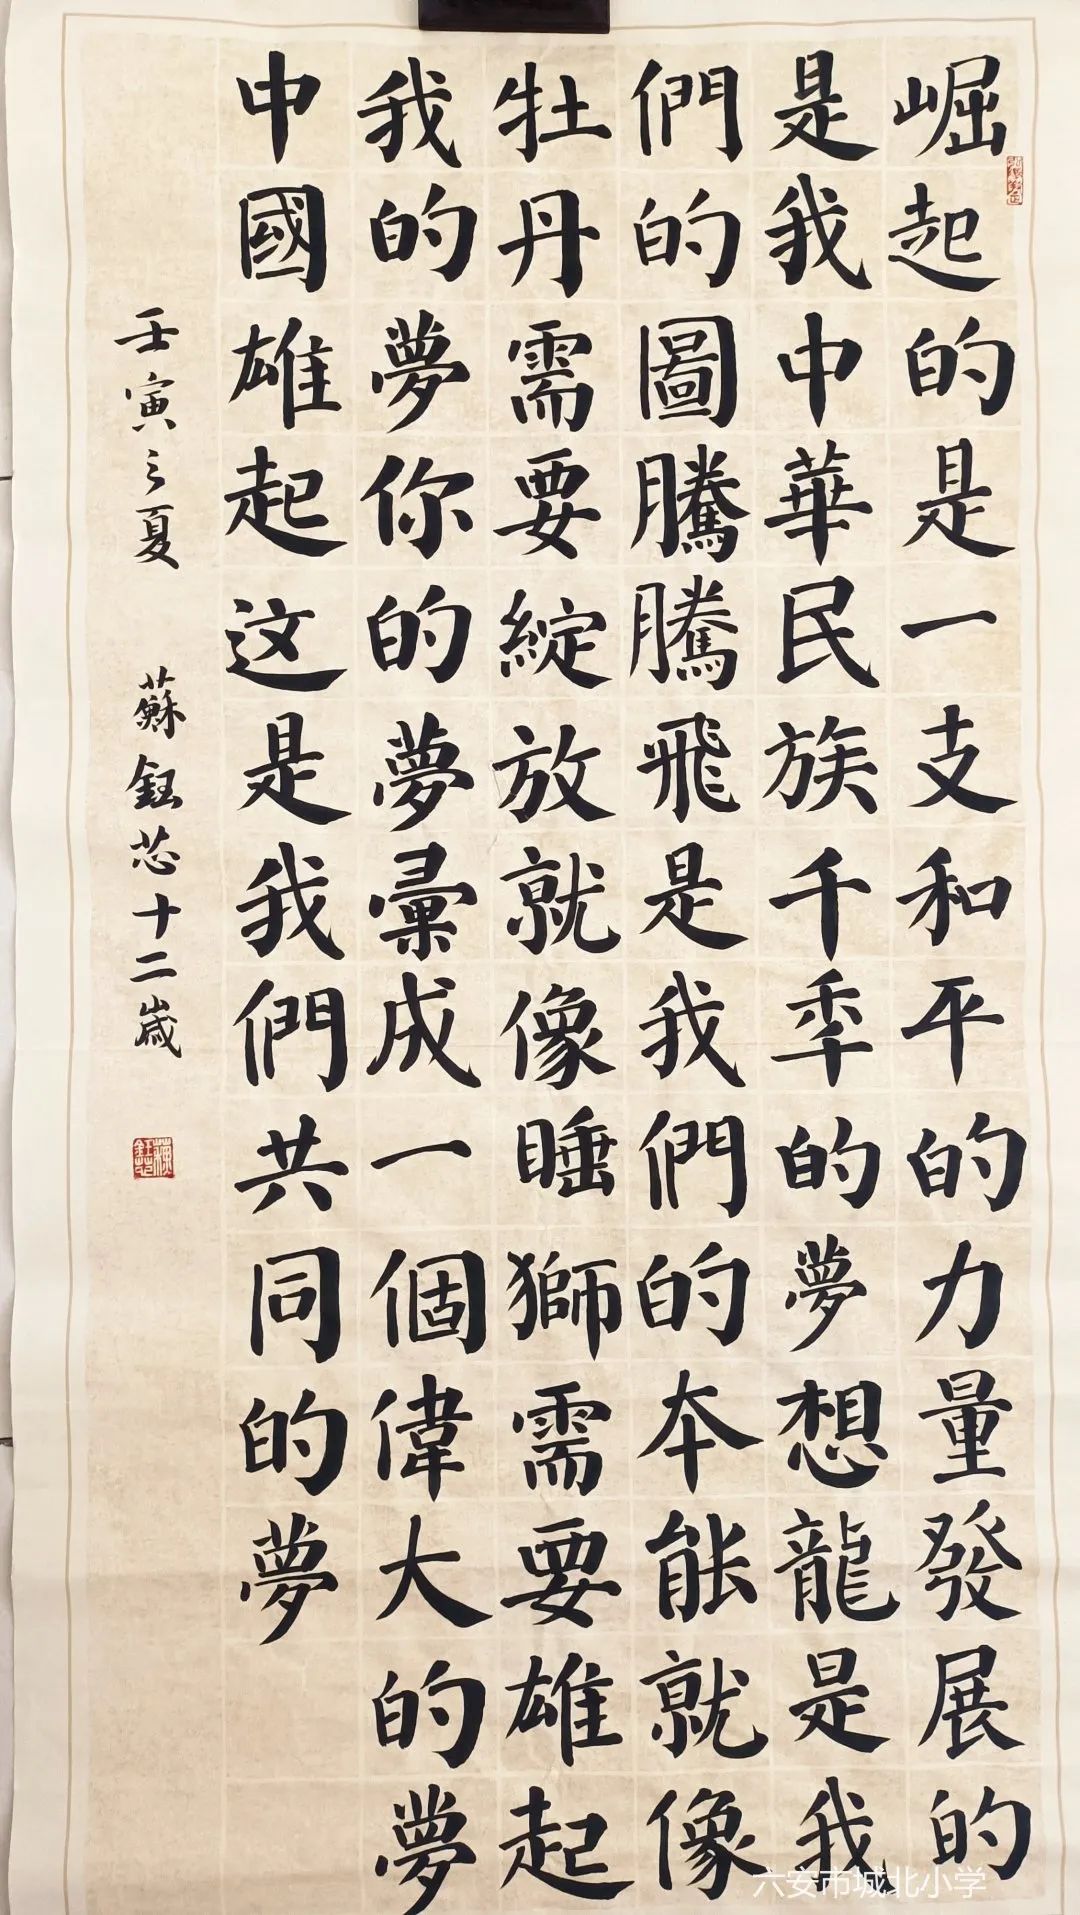 崛起的是一支和平的力量發展的
是我中華民族千秊的夢想龍是我
們的圖騰騰飛是我們的本能就像
牡丹需要綻放就像睡獅需要雄起
我的夢你的夢彙成一個偉大的夢
中國雄起这是我們共同的夢
壬寅之夏 蘇鈺芯十二歲
六安市城北小学